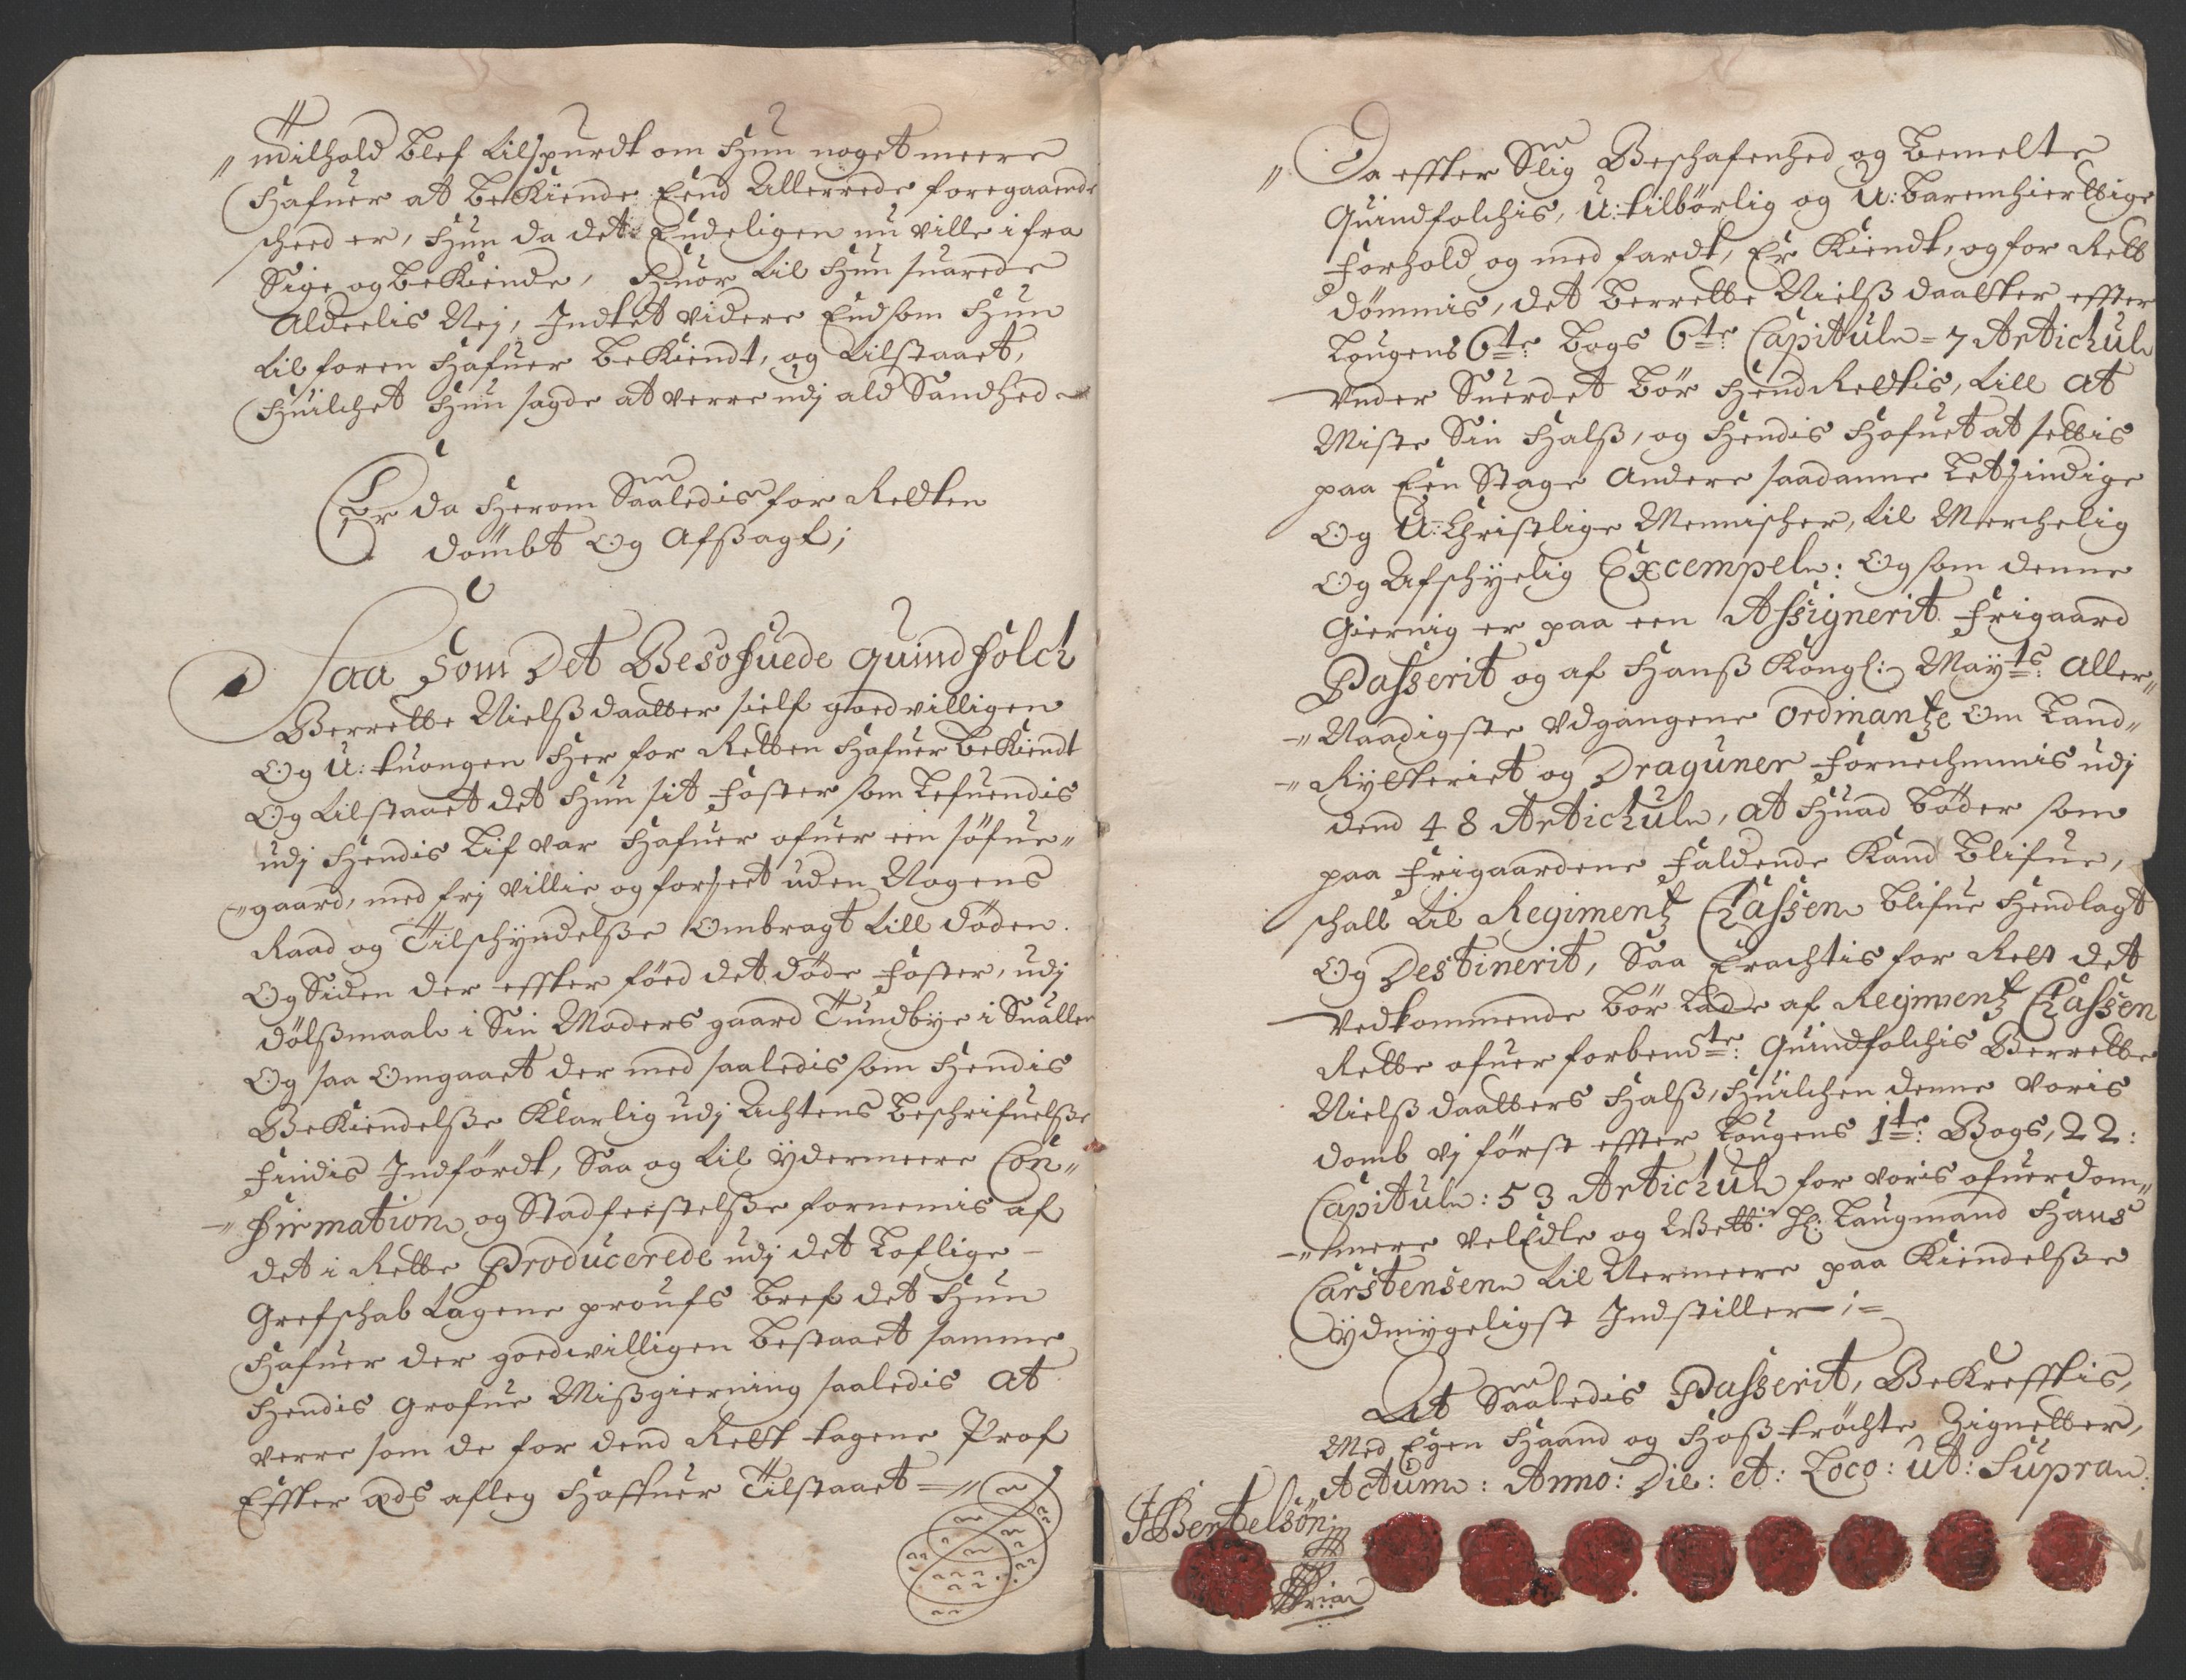 Indilhold blef tilspurdt om Hun noget meere
Hafuer at beKiende Eend Allerrede foregaaende
scheed er, Hun da det Endeligen nu ville i fra
Sige og beKiende, Huor til Hun suarede
Aldeelis Nej, Indtet videre End som Hun
til foren Hafuer beKiendt, og tilstaaet,
Huilchet Hun sagde at verre udj ald Sandhed
Er da Herom Saaledis for Retten
dömbt Og Afsagt;
Saa Som Det Besofuede quindfolch
Berrette Nielsdaatter sielf goedvilligen
Og U:tuongen Her for Retten Hafuer beKiendt
Og tilstaaet det Hun sit Foster som Lefuendis
udj Hendis Lif var Hafuer ofuer een söfue"
"gaard, med frj villie og forseet uden Nogens
Raad og Tilschyndelße Ombragt till döden.
Og Siden der effter föed det döde Foster, udj
dölßmaal i Sin Moders gaard Tundbye i Sualler
Og saa Omgaaet der med saaledis som Hendis
BeKiendelße Klarlig udj Achtens beschrifuelße
Findis Indfördt, Saa og til ydermeere Con"
"firmation og Stadfeestelße fornemis af
det i Rette Producerede udj det Loflige
Grefschab tagene proufs bref det Hun
Hafuer der goedwilligen bestaaet samme
Hendis Grofue Mißgierning saaledis at
verre som de for dend Rett tagene Prof
Effter æds afleg Haffuer Tilstaaet
Da effter Slig Beschafenhed og bemelte
Quindfolchis, U:tilbörlig og U:barmhiertige
Forhold og med fardt, Er Kiendt, og for Rett
dömmis, det berrette Nielß daatter effter
Lougens 6te: bogs 6te: Capitul 7 Artichul
Vnder Suerdet bör Hend Rettis, till at
Miste Sin Halß, og Hendis Hofuet at settis
paa Een Stage Andere saadanne Letsindige
Og U:Christlige Mennischer, til Merchelig
Og Afschyelig Excempel: Og som denne
Gierning er paa een Assignerit Frigaard
Passerit og af Hanß Kongl: Mayts: Aller"
"Naadigste Vdgangene Ordinantze Om Land"
"Rytteriet og Draguner Fornechmmis udj
dend 48 Artichul, at Huad böder som
paa Frigaardene Faldende Kand blifue,
schall til Regimentz Cassen blifue Hendlagt
Og Destinerit, Saa Erachtis for Rett det
Vedkommende bör lade af Regimentz Cassen
Rette ofuer forbendte: Quindfolchis Berrette
Nielß daatters Halß, Huilchen denne voris
domb vj först effter Lougens 1te: Bogs, 22:
Capitul: 53 Artichul for voris ofuerdom"
"mere velEdle og Wett: Hr: Laugmand Hans
Carstensen til Nermeere paa Kiendelße
ydmygeligst Indstiller ;
At Saaledis Passerit, Bekrefftis,
Med Egen Haand og Hoßtröchte Zignetter,
Actum: Anno: Die: et: Loco: ut: Supra
JBertelsön